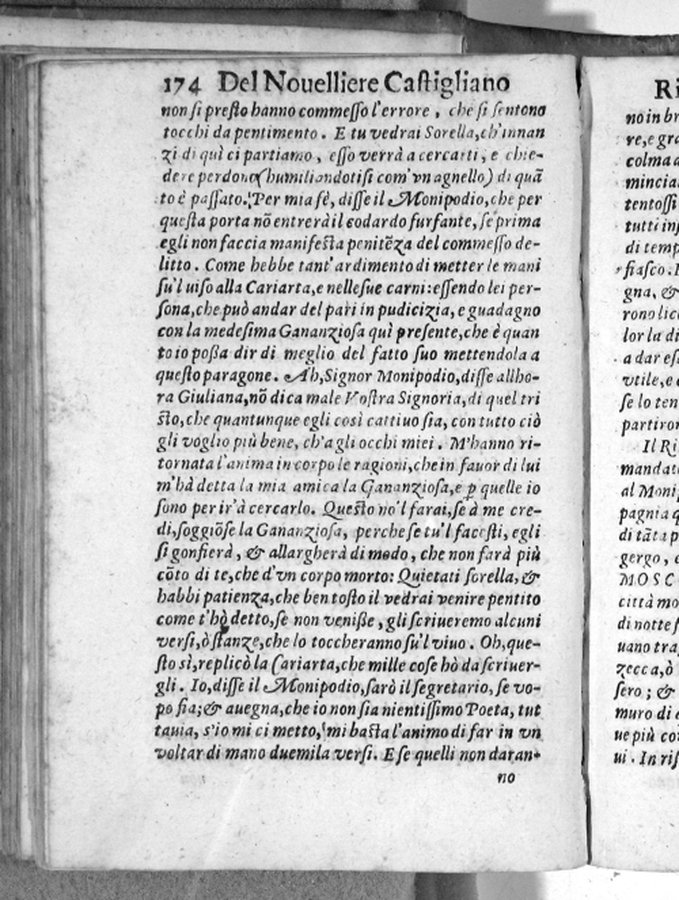 174 Del Nouelliere Castigliano
non si presto hanno commesso l'errore, che si sentono
tocchi da pentimento. E tu vedrai Sorella, ch'innan
zi di quì ci partiamo, esso verrà a cercarti, e chie-
dere perdono (humiliandotisi com'vn agnello) di quã
to è passato. Per mia fè, disse il Monipodio, che per
questa porta nõ entrerà il codardo furfante, se prima
egli non faccia manifesta penitẽza del commesso de-
litto. Come hebbe tant'ardimento di metter le mani
su'l uiso alla Cariarta, e nelle sue carni: essendo lei per-
sona, che può andar del pari in pudicizia, e guadagno
con la medesima Gananziosa quì presente, che è quan
to io possa dir di meglio del fatto suo mettendola a
questo paragone. Ah, Signor Monipodio, disse allho-
ra Giuliana, nõ dica male Vostra Signoria, di quel tri
sto, che quantunque egli così cattiuo sia, con tutto ciò
gli voglio più bene, ch'a gli occhi miei. M'hanno ri-
tornata l'anima in corpo le ragioni, che in fauor di lui
m'hà detta la mia amica la Gananziosa, e ꝑ quelle io
sono per ir'à cercarlo. Questo no'l farai, se à me cre-
di, soggiõse la Gananziosa, perche se tu'l facesti, egli
si gonfierà, & allargherà di modo, che non farà più
cõto di te, che d'vn corpo morto: Quietati sorella, &
habbi patienza, che ben tosto il vedrai venire pentito
come t'hò detto, se non venisse, gli scriueremo alcuni
versi, ò stanze, che lo toccheranno su'l viuo. Oh, que-
sto sì, replicò la Cariarta, che mille cose hò da scriuer-
gli. Io, disse il Monipodio, sarò il segretario, se vo-
po sia; & auegna, che io non sia nientissimo Poeta, tut
tauia, s'io mi ci metto, mi basta l'animo di far in vn
voltar di mano duemila versi. E se quelli non daran-
no
Ri
no in br
re, e gra
colma a
mincia
tentossi
tutti inf
di temp
fiasco. I
gna, &
rono lic
lor la di
a dar es
vtile, e
se lo ten
partiron
Il Ri
mandat
al Moni
pagnia q
di tãta p
gergo, e
MOSC
città mo
di notte f
uano tra
zecca, ò
sero; &
muro di
ue più co
ui. In ris